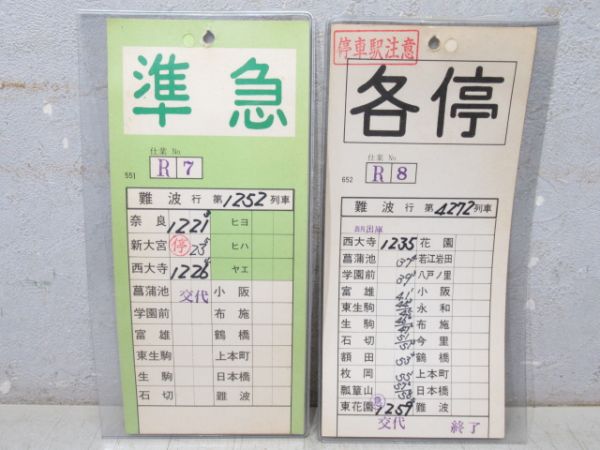 準急
仕業 No
551 R 7
難波 行 第 1252 列車
奈良 1221 ヒヨ
新大宮 停 23 ヒハ
西大寺 1226 ヤエ
菖蒲池 交代 小阪
学園前 布施
富雄 鶴橋
東生駒 上本町
生駒 日本橋
石切 難波
停車駅注意
各停
仕業 No
652 R 8
難波 行 第 4272 列車
出庫
西大寺 1235 花園
菖蒲池 37 若江岩田
学園前 39 八戸ノ里
富雄 41 小阪
東生駒 永和
生駒 布施
石切 今里
額田 53 鶴橋
枚岡 55 上本町
瓢簞山 日本橋
東花園 1259 難波
交代 終了